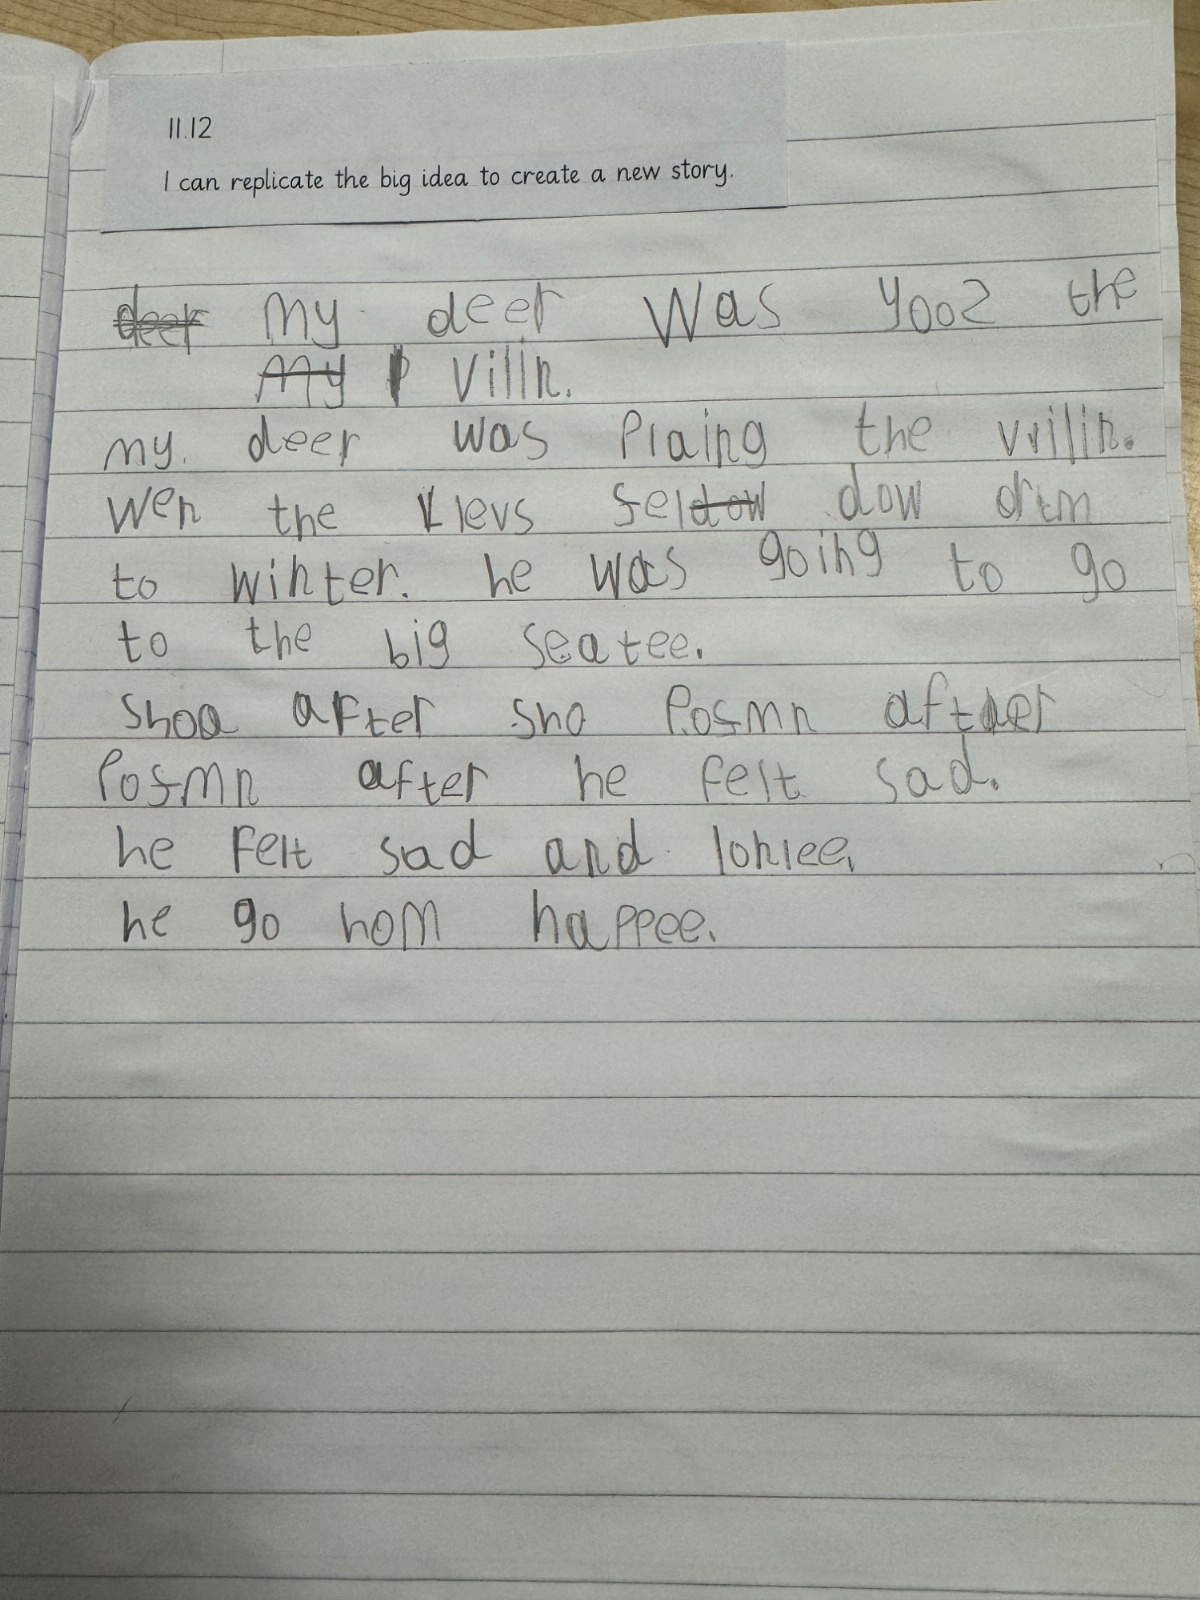 11.12
I can replicate the big idea to create a new story.
deer my deer was yooz the
My villin.
my. deer was Plaing the vrilin.
wen the levs feldow dow
to winter. he was going to go
to the big seatee.
shoa after sho Posmn after
Posmn after he felt sad.
he felt sad and lonlee.
he go hom happee.